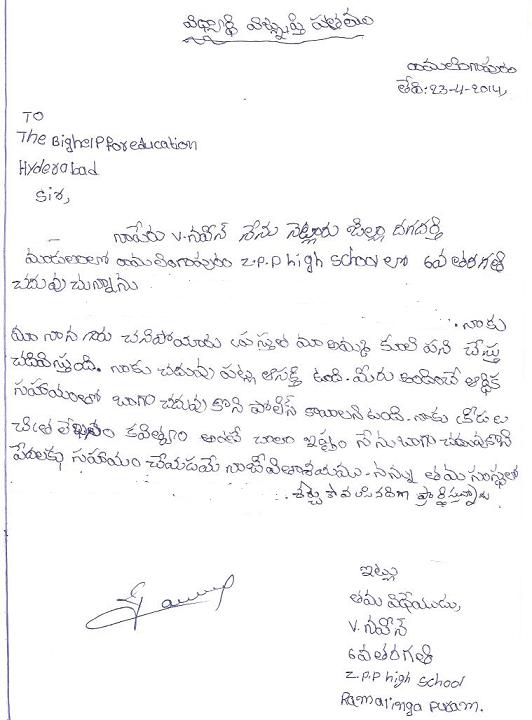 విద్యార్థి విజ్ఞప్తి పత్రము
రామలింగాపురం
తేది: 23-4-2014,
TO
The BighelP For education
Hyderabad
Sir,
నాపేరు v.నవీన్ నేను నెల్లూరు జిల్లా దగదర్తి
మండలంలో రామలింగాపురం Z.P.P high School లో 6వ తరగతి
చదువు చున్నాను
నాకు
మా నాన గారు చనిపోయారు ప్రస్తుత మా అమ్మ కూలి పని చేస్తు
చదివిస్తుంది. నాకు చదువు పట్ల ఆసక్తి ఉంది. మీరు అందించే ఆర్థిక
సహాయంతో బాగా చదువు కొని పోలిస్ కావాలని ఉంది. నాకు క్రీడలు
చిత్రలేఖనం కవిత్వం అంటే చాలా ఇష్టం నేను బాగా చదువుకొని
పేదలకు సహాయం చేయడమే నా జీవితాశయము. నన్ను తమ సంస్థలో
చేర్చుకోవలసినదిగా ప్రార్థిస్తున్నాను
ఇట్లు
తమ విధేయుడు,
V. నవీన్
6వ తరగతి
Z.P.P high School
Ramalinga Puram.